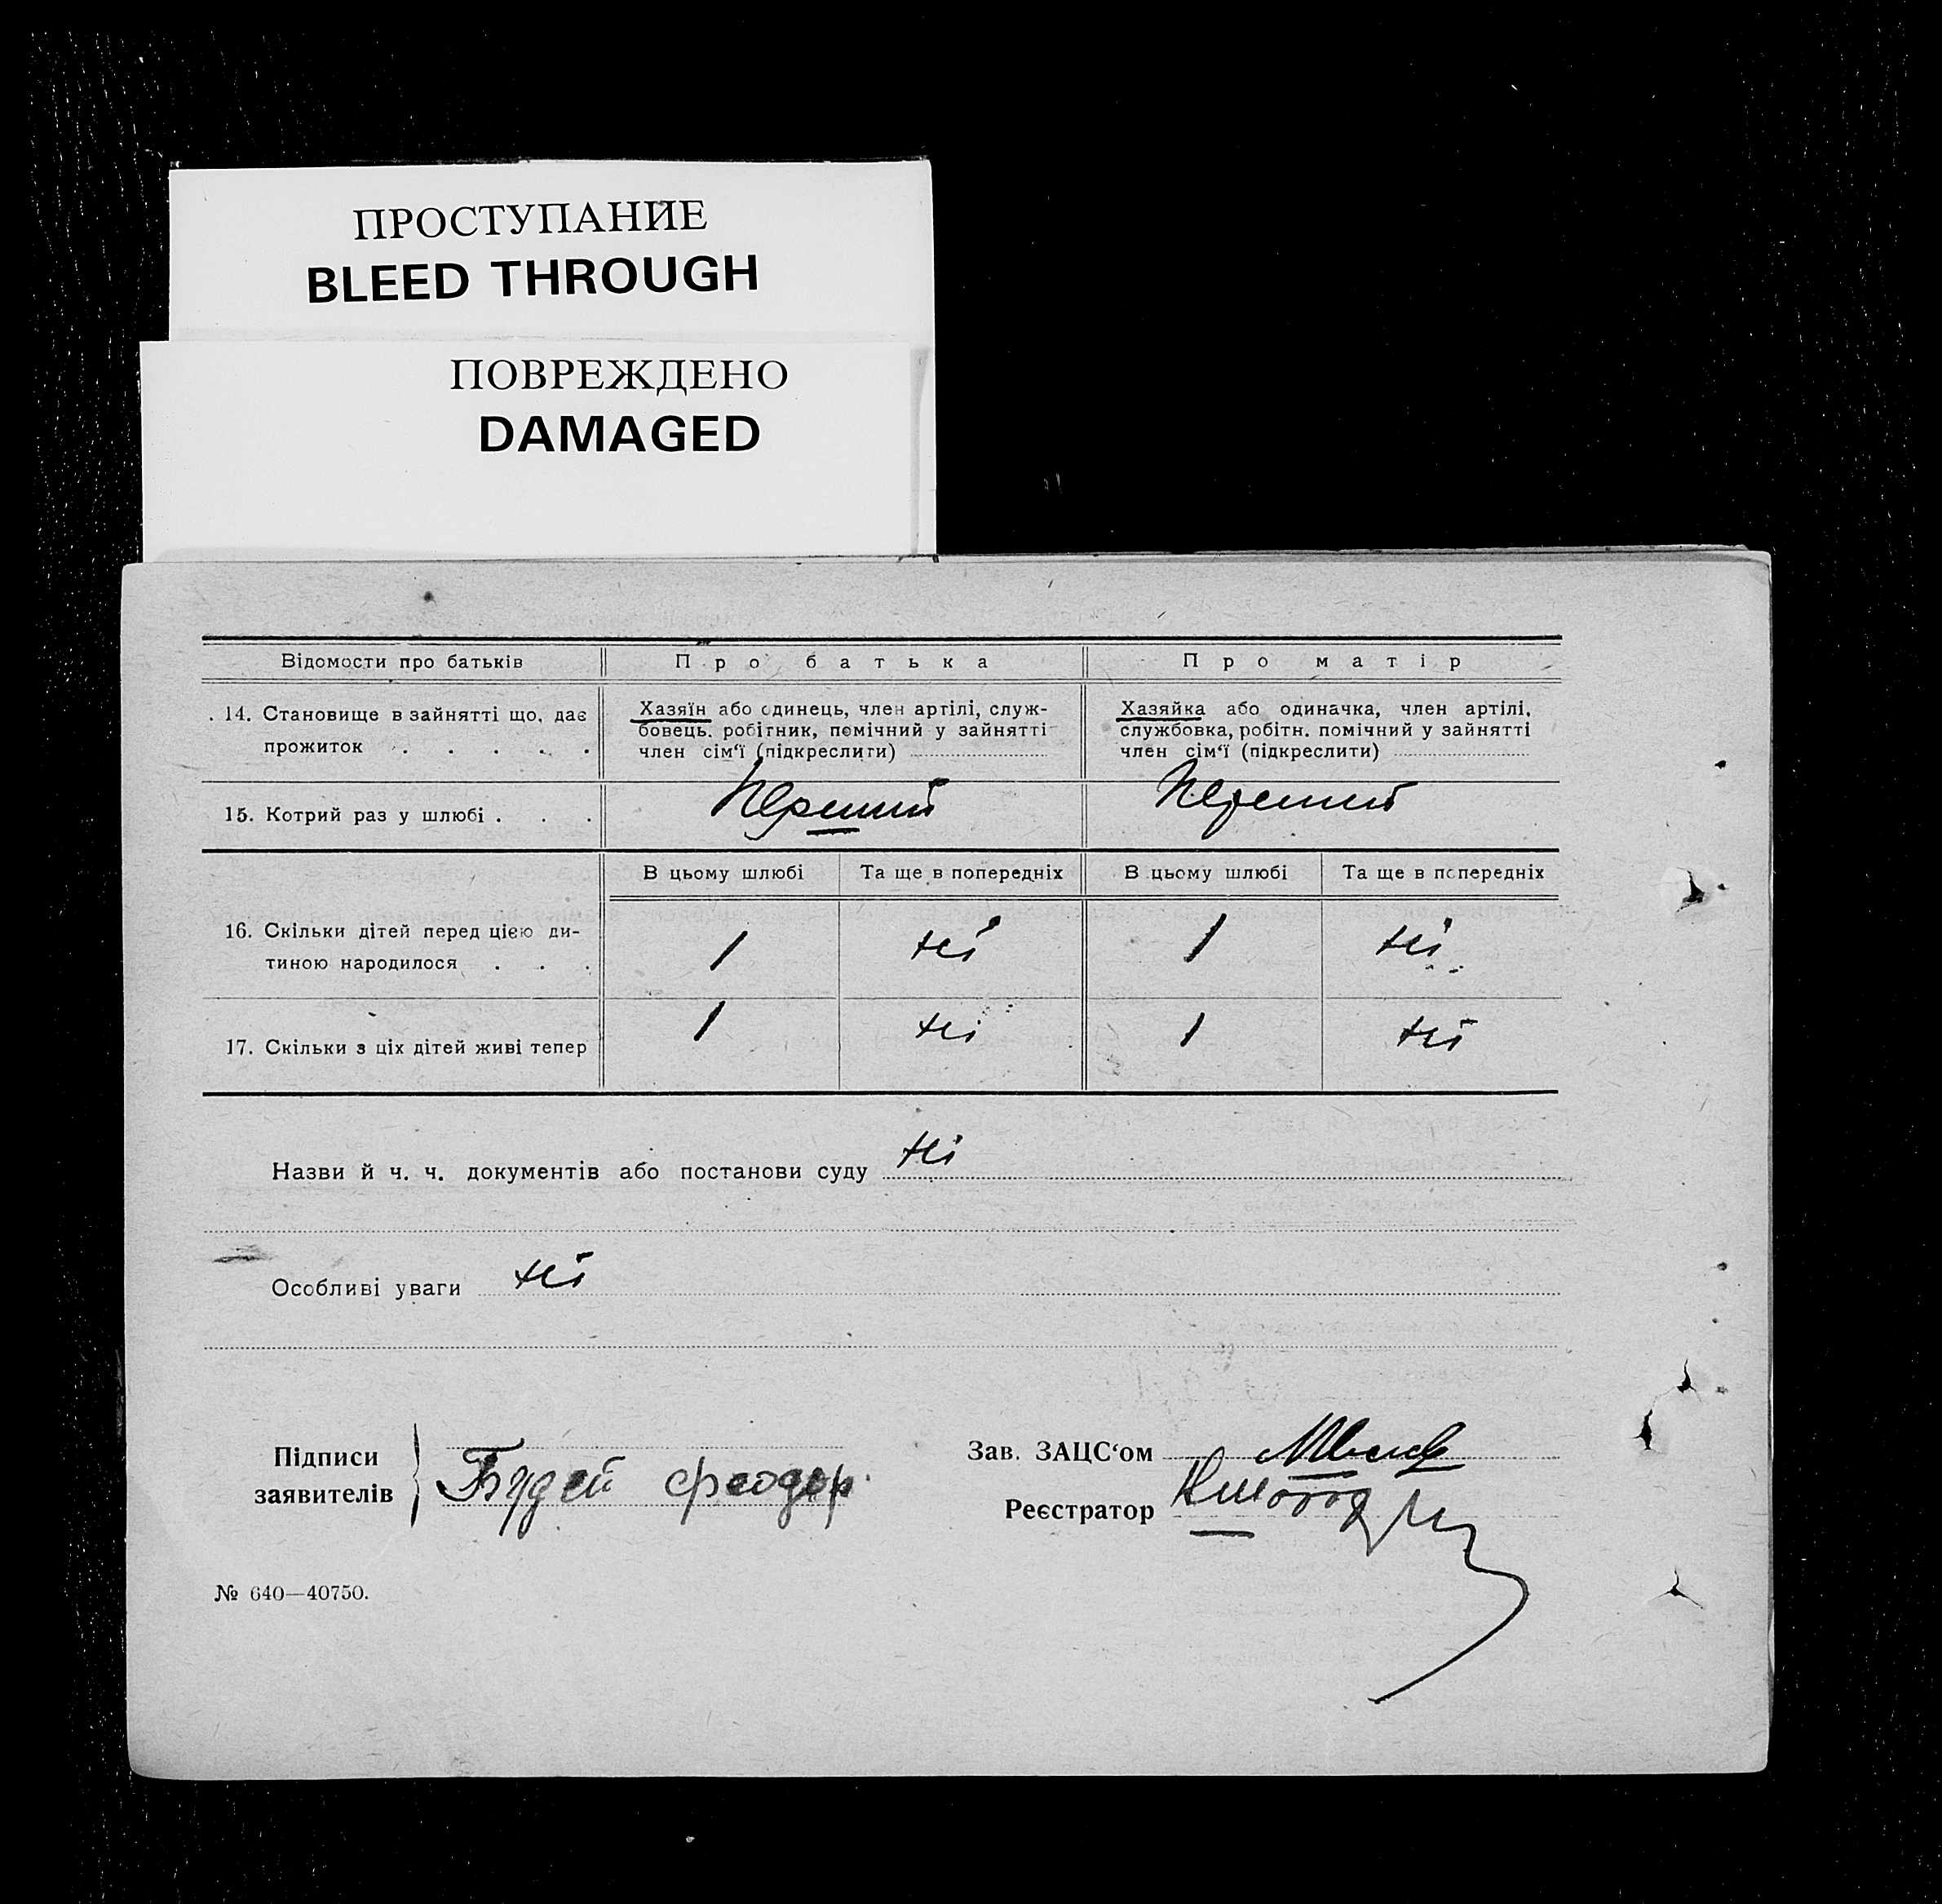 ПРОСТУПАНИЕ
BLEED THROUGH
ПОВРЕЖДЕНО
DAMAGED
Відомости про батьків
Про батька
Про матір
14. Становище в зайнятті що, дає
прожиток . . . . .
Хазяїн або одинець, член артілі, служ-
бовець. робітник, помічний у зайнятті
член сім‘ї (підкреслити)
Хазяйка або одиначка, член артілі,
службовка, робітн. помічний у зайнятті
член сім‘ї (підкреслити)
15. Котрий раз у шлюбі . . .
Перший
Перший
В цьому шлюбі
Та ще в попередніх
В цьому шлюбі
Та ще в попередніх
16. Скільки дітей перед цією ди-
тиною народилося . . .
1
ні
1
ні
17. Скільки з ціх дітей живі тепер
1
ні
1
ні
Назви й ч. ч. документів або постанови суду ні
Особливі уваги ні
Підписи
заявителів
Будей феодор
Зав. ЗАЦС‘ом
Реєстратор
№ 640—40750.